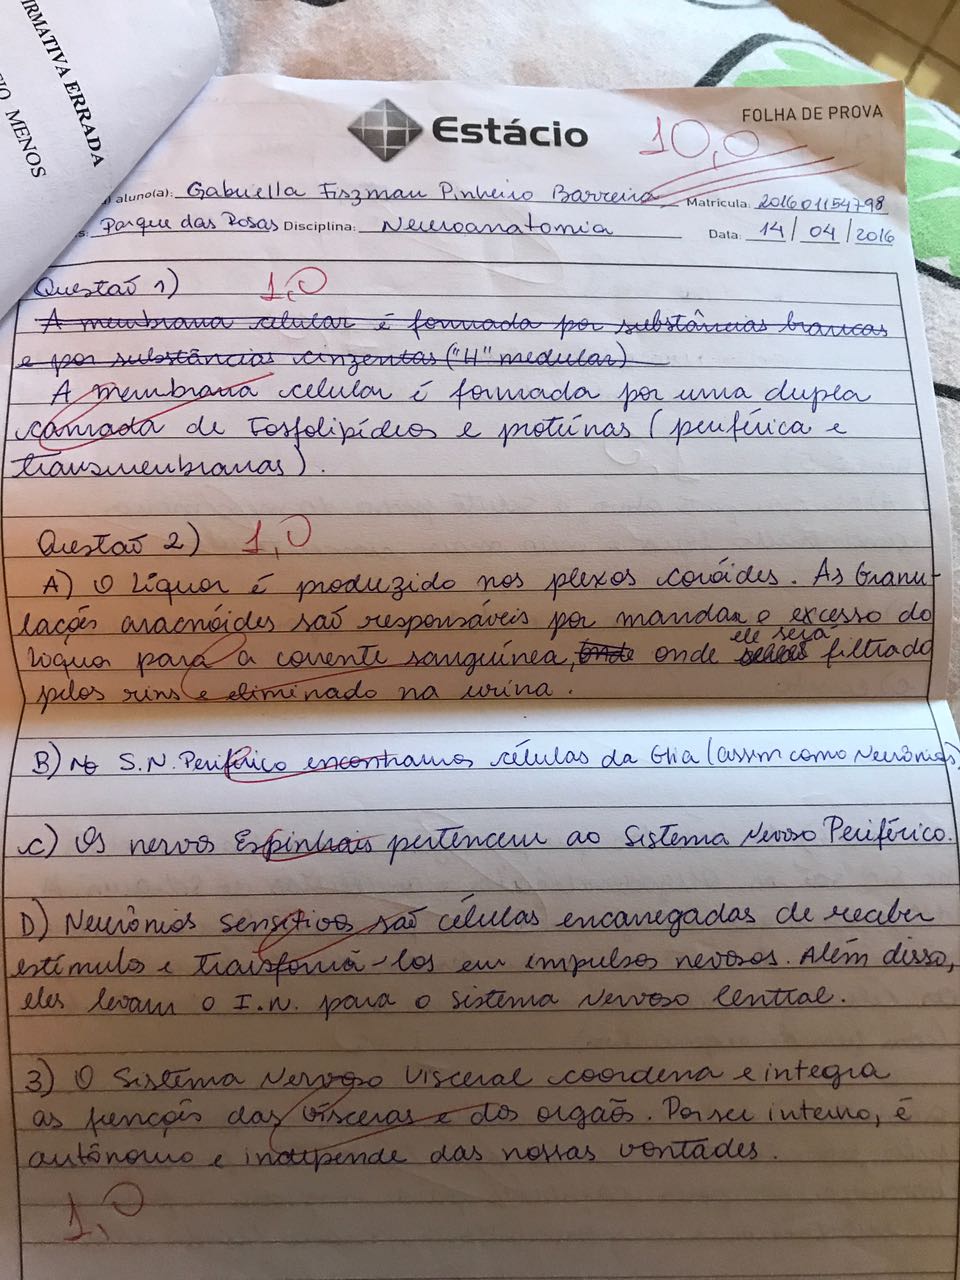 IRMATIVA ERRADA
MENOS
Estácio
FOLHA DE PROVA
10,0
aluno(a): Gabriella Fiszman Pinheiro Barreira Matrícula: 201601154798
Parque das Rosas Disciplina: Neuroanatomia Data: 14/04/2016
Questão 1) 1,0
A membrana celular é formada por substâncias brancas
e por substâncias cinzentas ("H" medular)
A membrana celular é formada por uma dupla
camada de Fosfolipídeos e proteínas (periférica e
transmembranas).
Questão 2) 1,0
A) O Líquor é produzido nos plexos coróides. As Granu-
lações aracnóides são responsáveis por mandar o excesso do
líquor para a corrente sanguínea, onde onde ele será filtrado
pelos rins e eliminado na urina.
B) No S.N. Periférico encontramos células da Glia (assim como Neurônios)
C) Os nervos Espinhais pertencem ao Sistema Nervoso Periférico.
D) Neurônios Sensitivos são células encarregadas de receber
estímulos e transformá-los em impulsos nervosos. Além disso,
eles levam o I.N. para o Sistema Nervoso Central.
3) O Sistema Nervoso Visceral coordena e integra
as funções das vísceras e dos orgãos. Por ser interno, é
autônomo e independe das nossas vontades.
1,0